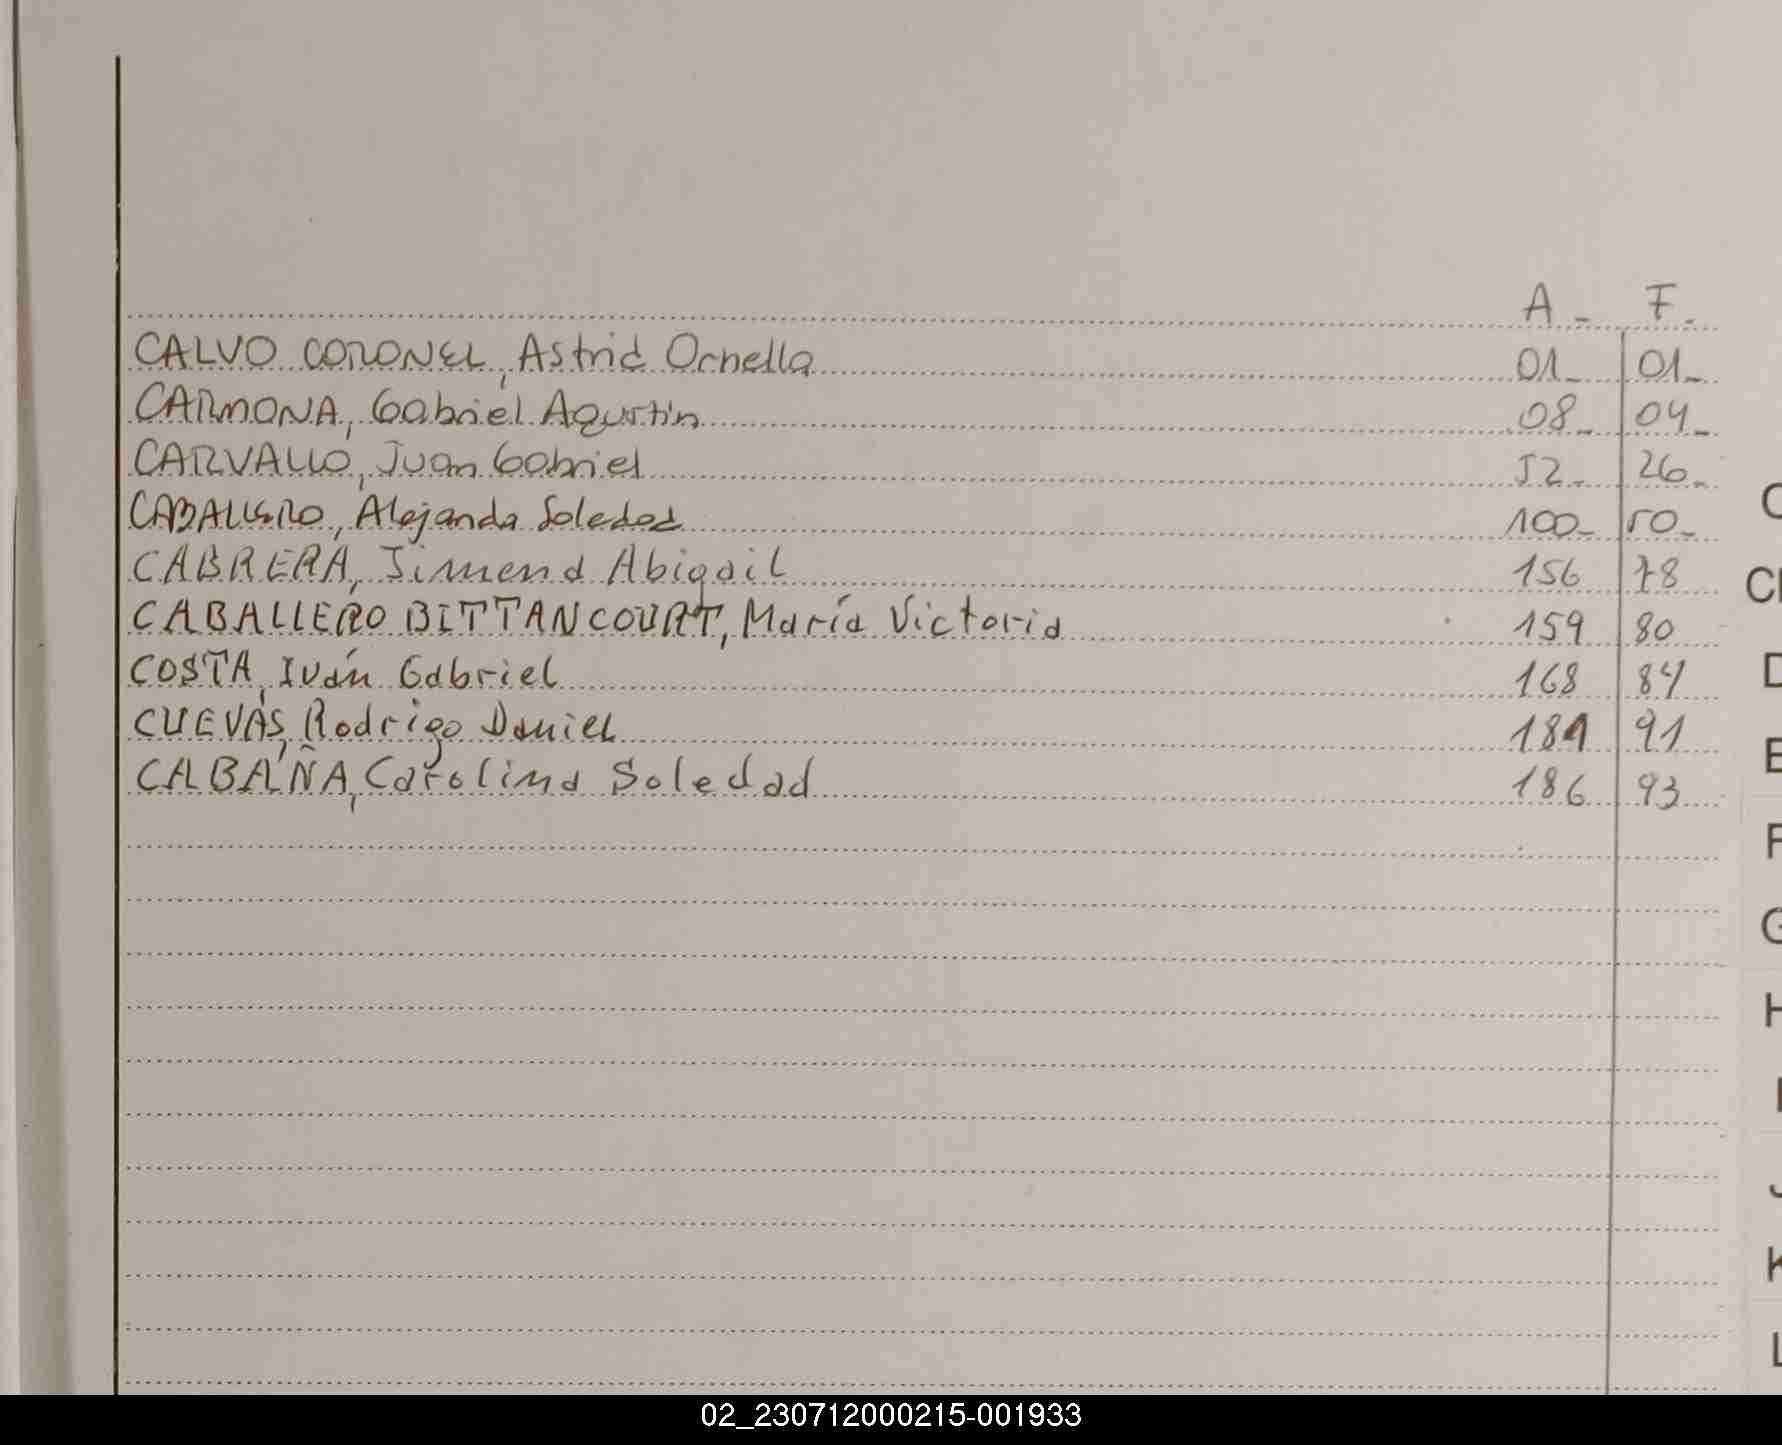 A_ F_
CALVO CORONEL, Astrid Ornella 01_ 01_
CARMONA, Gabriel Agustín 08_ 04_
CARVALLO, Juan Gabriel 52_ 26_
CABALLERO, Alejanda Soledad 100_ 50_
CABRERA, Jimena Abigail 156 78
C
CH
CABALLERO BITTANCOURT, María Victoria 159 80
COSTA, Iván Gabriel 168 84
D
CUEVAS, Rodrigo Daniel 181 91
E
CABAÑA, Carolina Soledad 186 93
F
G
H
I
J
K
L
02_230712000215-001933